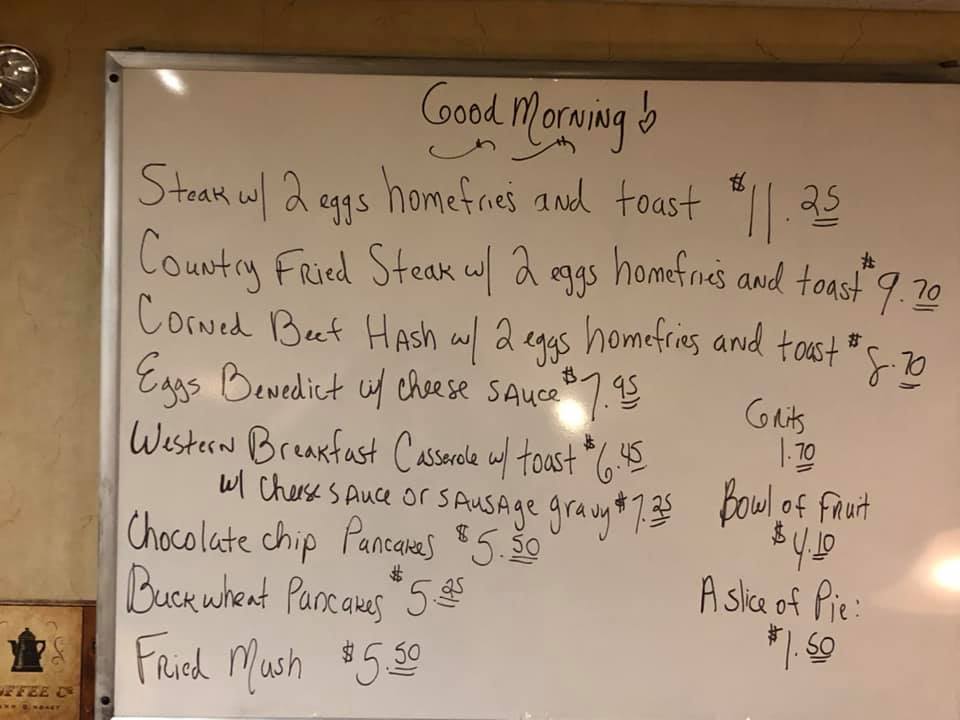 Good Morning!
Steak w/ 2 eggs homefries and toast $11.25
Country Fried Steak w/ 2 eggs homefries and toast $9.70
Corned Beef Hash w/ 2 eggs homefries and toast $8.70
Eggs Benedict w/ cheese sauce $7.95
Western Breakfast Casserole w/ toast $6.45
w/ cheese sauce or sausage gravy $7.25
Chocolate chip Pancakes $5.50
Buckwheat Pancakes $5.25
Fried Mush $5.50
Grits
1.70
Bowl of Fruit
$4.10
A slice of Pie:
$1.50